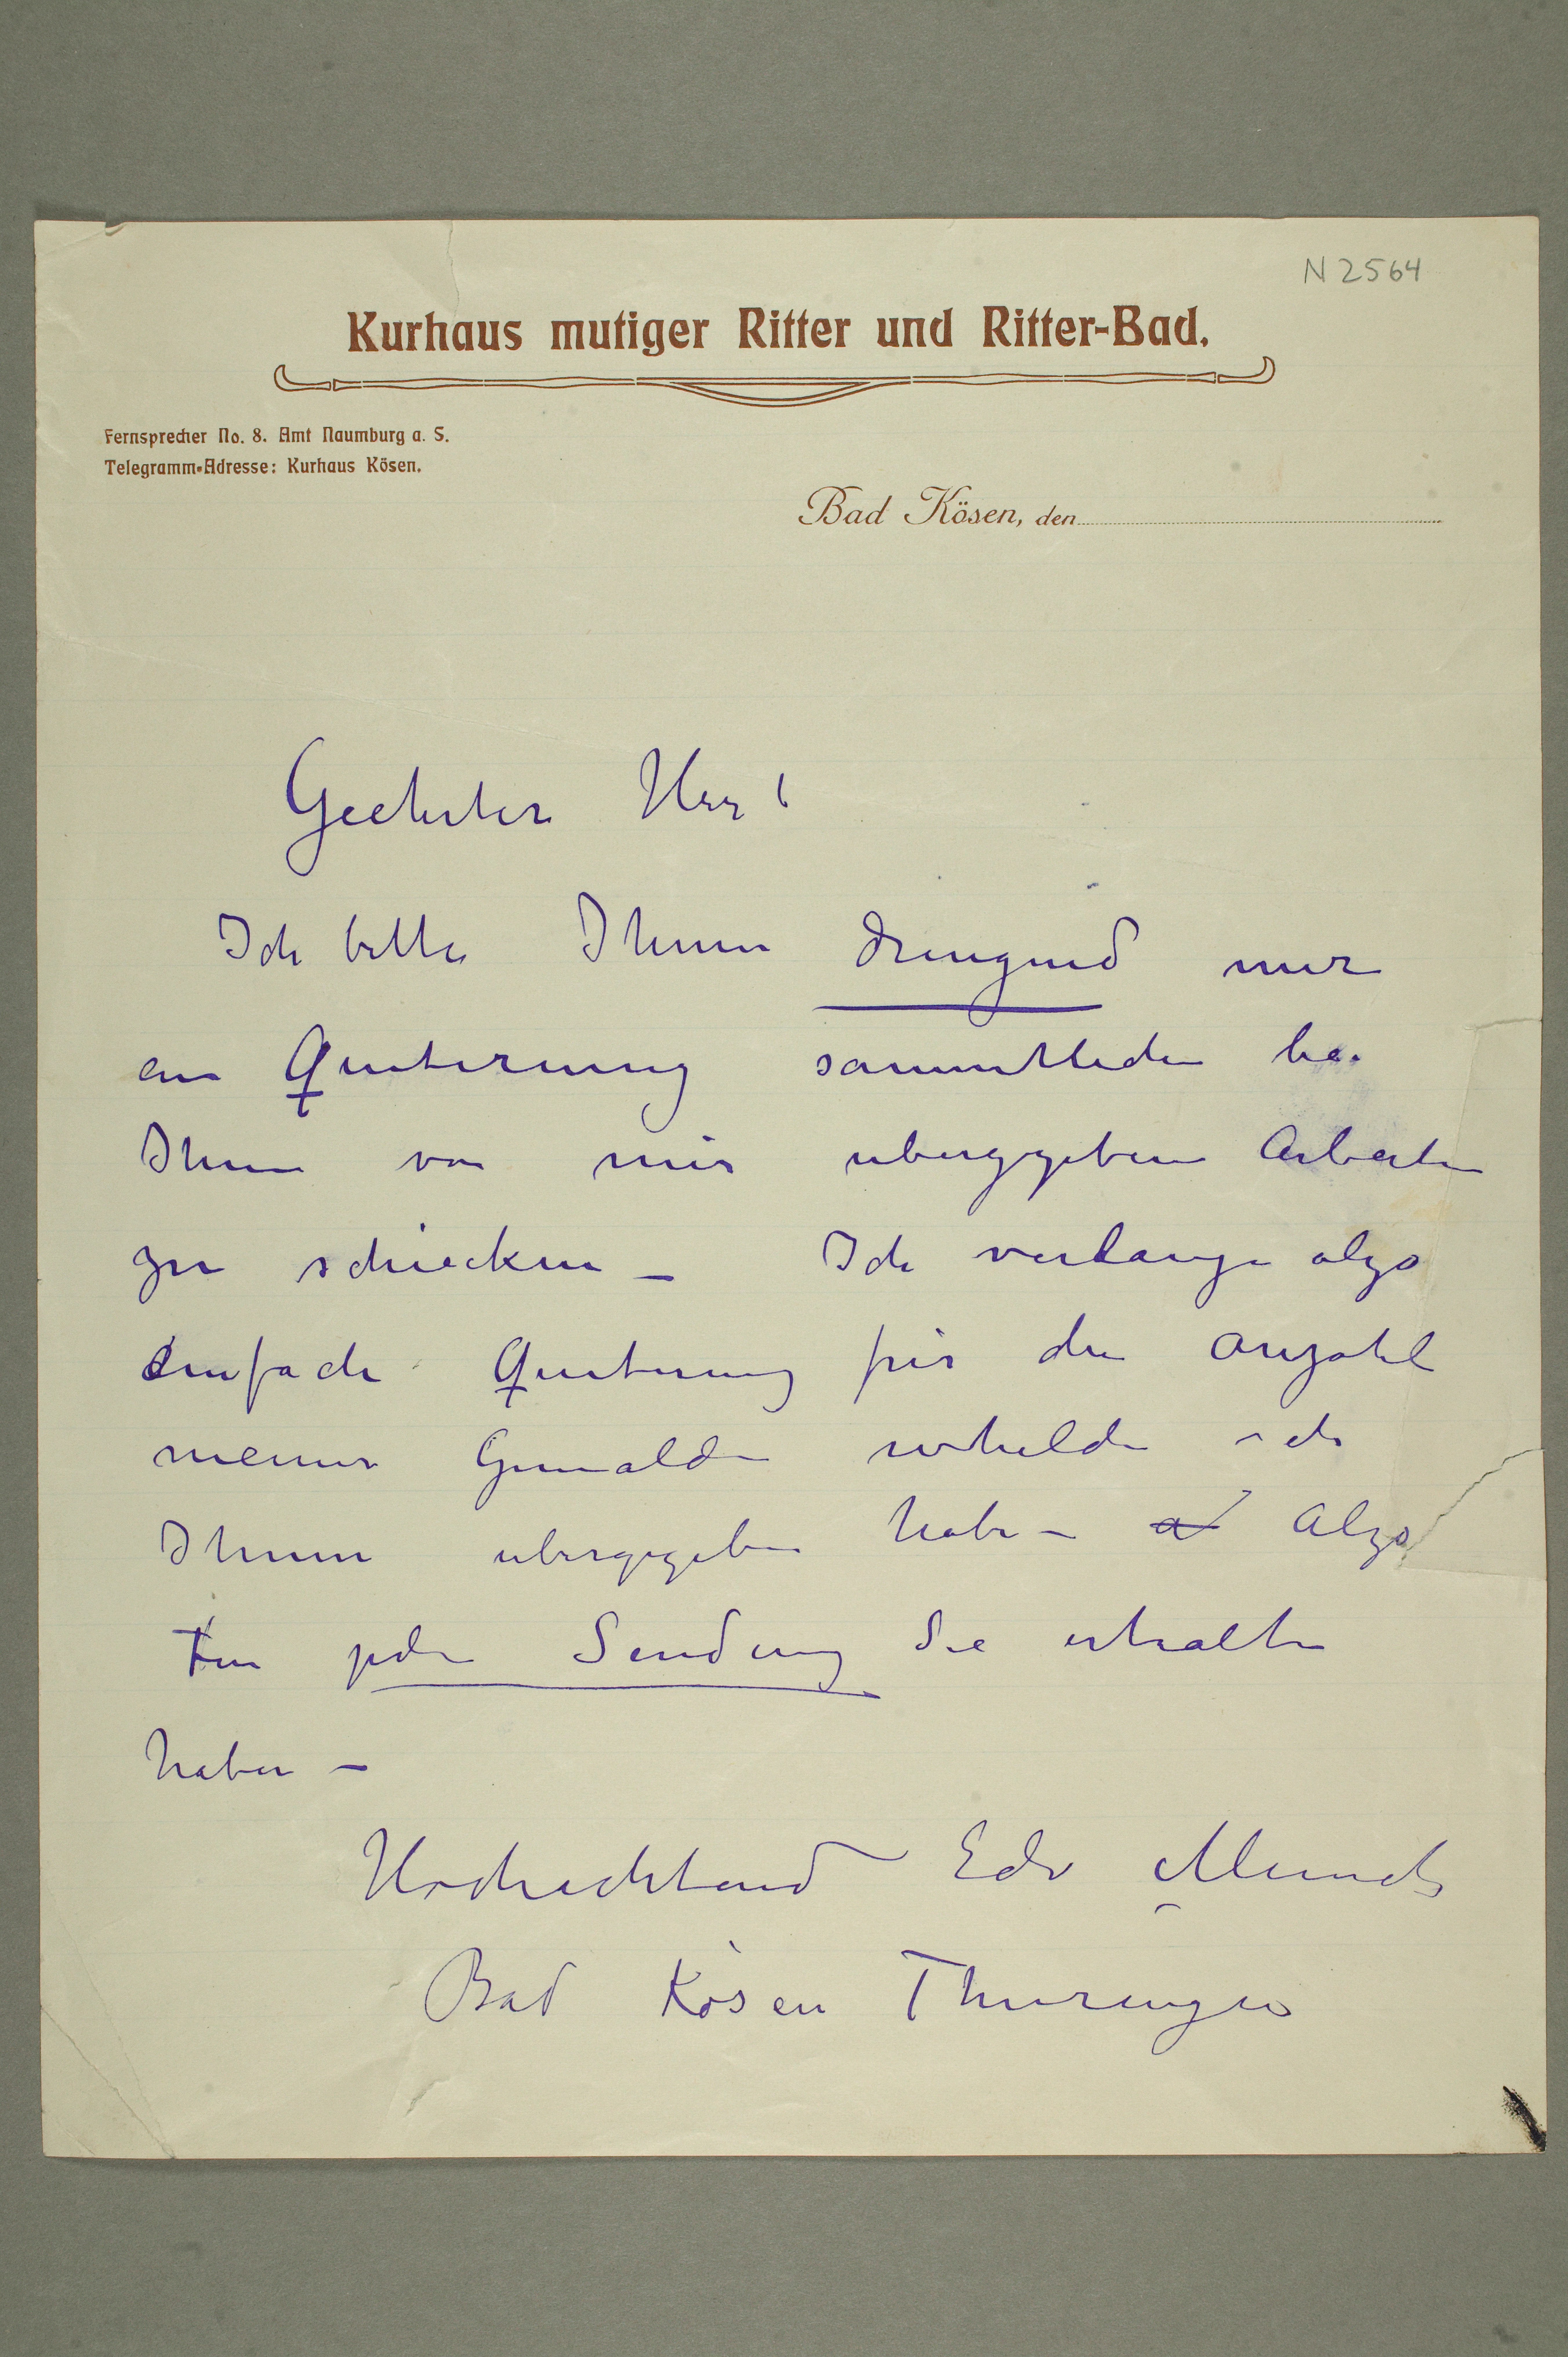 N 2564
Kurhaus mutiger Ritter und Ritter-Bad.
Fernsprecher No. 8. Amt Naumburg a. S.
Telegramm-Adresse: Kurhaus Kösen.
Bad Kösen, den
Geehrter Herr!
Ich bitte Ihnen dringend mir
en Quiterung sammtlicher bei
Ihnen von mir ubergegebene Arbeiten
zu schiecken – Ich verlange alzo
einfach Quiterung für die Anzahl
meiner Gemälde welche ich
Ihnen ubergegeben habe – a Alzo
Für jede Sendung Sie erhalten
haben –
Hochachtend Edv Munch
Bad Kösen Thuringen